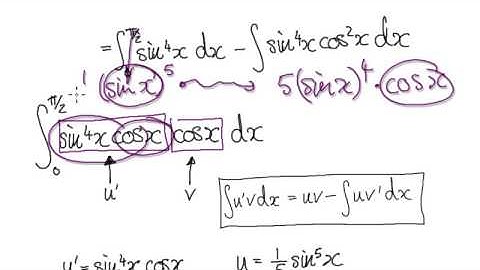 = ∫ π/2 sin⁴x dx − ∫ sin⁴x cos²x dx
(sin x)⁵ → 5(sin x)⁴ · cos x
∫₀^π/2 sin⁴x cosx cosx dx
u' v
∫u'v dx = uv − ∫uv' dx
u' = sin⁴x cosx u = 1/5 sin⁵x